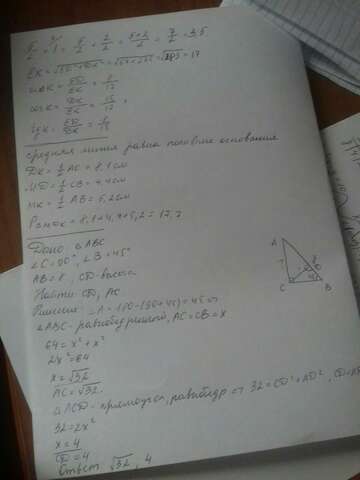 5/2 + 1 = 5/2 + 2/2 = (5+2)/2 = 7/2 = 3,5
EK = √289 = 17
sin K = ED/EK = 8/17
cos K = DK/EK = 15/17
tg K = ED/DK = 8/15
средняя линия равна половине основания
DK = 1/2 AC = 8,1 см
MD = 1/2 CB = 4,4 см
MK = 1/2 AB = 5,2 см
P = 8,1 + 4,4 + 5,2 = 17,7
Дано: △ABC
∠C = 90°, ∠B = 45°
AB = 8, CD - высота
Найти: CD, AC
Решение: ∠A = 180-(90+45) = 45 ⇒
△ABC - равнобедренный, AC = CB = x
64 = x² + x²
2x² = 64
x = √32
AC = √32
△ACD - прямоуг, равнобедр ⇒ 32 = CD² + AD²,
32 = 2x²
x = 4
CD = 4
Ответ: √32, 4
A
8
D
C
B